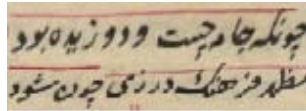 چونکه جامه چست و دوزیده بود
مظهر فرهنگ درزی چون شود